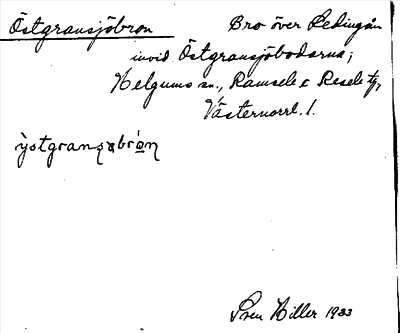 Östgransjöbron Bro över Ledingån
invid Östgransjöbodarna;
Helgums sn., Ramsele o Resele tg,
Västernorrl. l.
ỳstgranʂabrón
Sven Hiller 1933